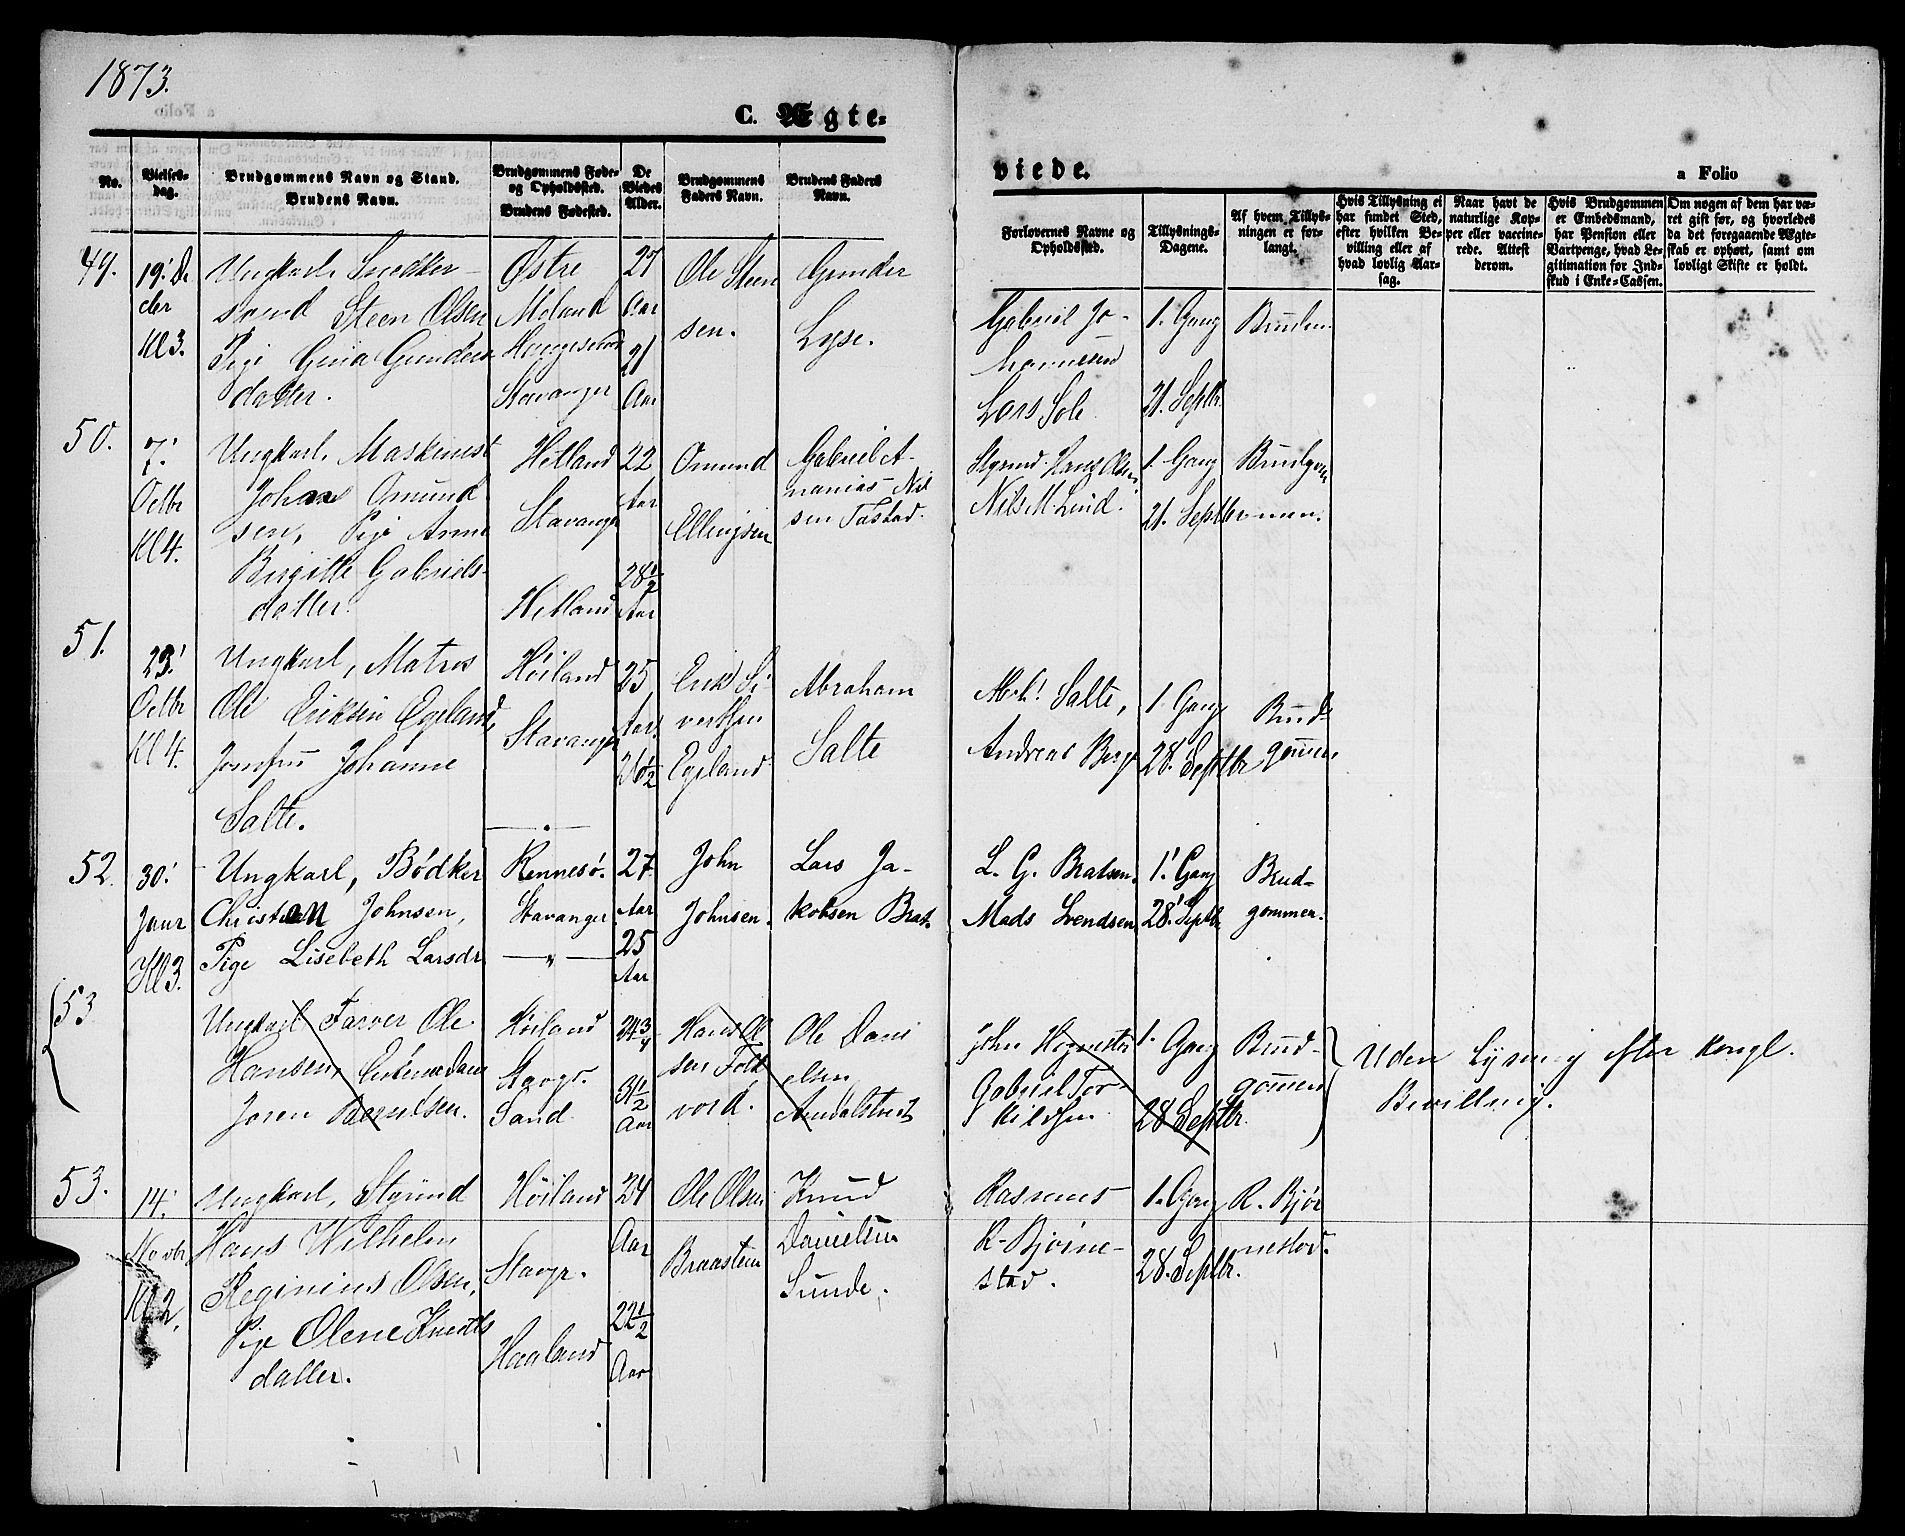 1873.
C. Ægte=
viede.
a Folio
No.
Vielses-
dag.
Brudgommens Navn og Stand.
Brudens Navn.
Brudgommens Føde-
og Opholdssted.
Brudens Fødested.
De
Viedes
Alder.
Brudgommens
Faders Navn.
Brudens Faders
Navn.
Forlovernes Navne og
Opholdssted.
Tillysnings-
Dagene.
Af hvem Tillys-
ningen er for-
langt.
Hvis Tillysning ei
har fundet Sted,
efter hvilken Be-
villing eller af
hvad lovlig Aar-
sag.
Naar havt de
naturlige Kop-
per eller vaccine-
rede. Attest
derom.
Hvis Brudgommen
er Embedsmand,
har Pension eller
Vartpenge, hvad Le-
gitimation for Ind-
skud i Enke-Cassen.
Om nogen af dem har væ-
ret gift før, og hvorledes
da det foregaaende Ægte-
skab er ophørt, samt om
lovligt Skifte er holdt.
49.
19. De
cbr
Kl 3.
Ungkarl Snedker-
svend Steen Olsen
Pige Gina Gunders
datter.
Østre
Moland
Stavanger
27
Aar
21
Aar
Ole Steen
sen.
Gunder
Lyse.
Gabriel Jo-
hannesen
Lars Sole
1. Gang
21. Septbr.
Bruden
50.
7.
Octbr
Kl 4.
Ungkarl. Maskinist
Johan Omund
sen, Pige Anne
Birgitte Gabriels-
datter.
Hetland
Stavanger
Hetland
22
Aar
28½
Aar
Omund
Ellingsen
Gabriel A-
nanias Nil
sen Tastad.
Styrmd. Hans Olsen
Nils M. Lind.
1. Gang
21. Septbr
Brudgom
men.
51.
23.
Octbr
Kl 4.
Ungkarl, Matros
Ole Eriksen Egeland,
Jomfru Johanne
Salte.
Høiland
Stavanger
— " —
25
Aar.
26½
Erik Si-
vertsen
Egeland
Abraham
Salte
Mch. Salte,
Andreas Berge
1. Gang
28. Septbr
Brud-
gommen
52.
30.
Jaur
Kl 3.
Ungkarl, Bødker
Christian Johnsen,
Pige Lisebeth Larsdr
Rennesø.
Stavanger
— " —
27
Aar
25
Aar
John
Johnsen.
Lars Ja-
kobsen Brat.
L. G. Bratsen.
Mads Svendsen
1. Gang
28. Septbr
Brud-
gommen.
53
Ungkarl Farver Ole
Hansen,
Joren Berntsen.
Høiland
Stavgr.
Sand
24¾
31½
Aar
Hans Ol
sen Fold
vord.
Ole Dani
elsen
John Hognestad
Gabriel Tor
kildsen
1. Gang
28 Septbr.
Brud-
gommen
Uden Lysning efter Kongl.
Bevilling.
53.
14.
Novbr
Kl 2.
Ungkarl, Styrmd
Hans Wilhelm
Reginius Olsen,
Pige Olene Knuds
datter.
Høiland
Stavgr.
Haaland
24
Aar
22½
Aar
Ole Olsen
Braastein
Knud
Danielsen
Sunde.
Rasmus
R. Bjørne-
stad.
1. Gang
28. Septbr.
R. Bjør
nestad.